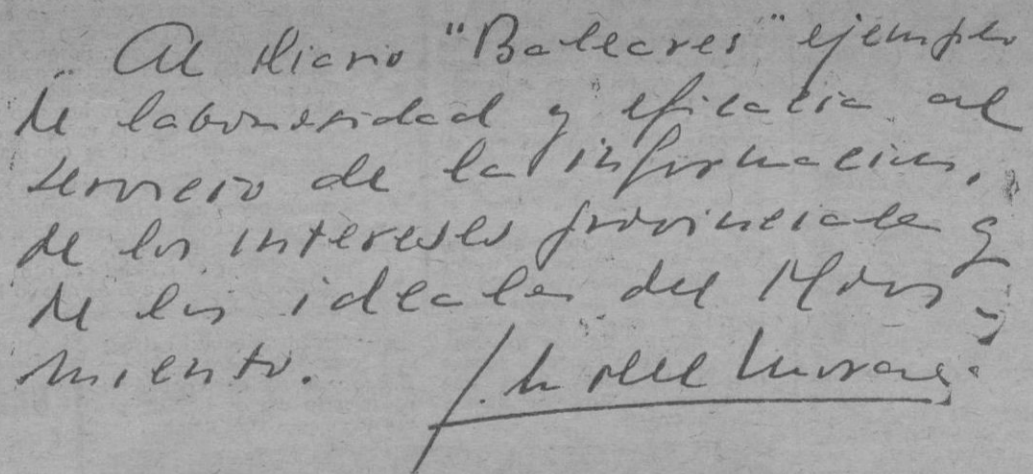 Al diario "Baleares" ejemplo
de laboriosidad y eficacia al
servicio de la información,
de los intereses provinciales y
de los ideales del Movi-
miento.
J. del Moral